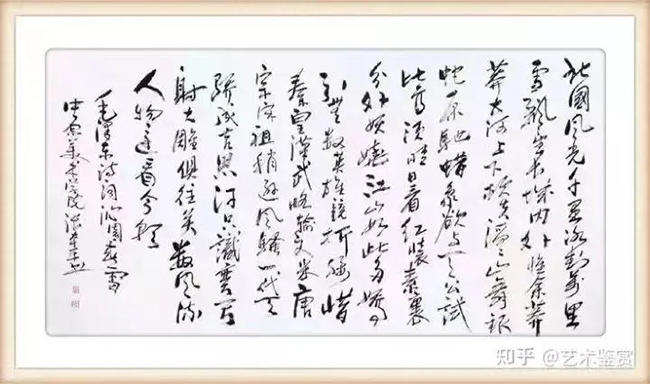 北國风光千里冰封萬里
雪飘望长城内外惟余莽
莽大河上下顿失滔滔山舞银
蛇原驰蜡象欲与天公试
比高须晴日看红装素裹
分外妖娆江山如此多娇
引無数英雄竞折腰惜
秦皇漢武略输文采唐
宗宋祖稍逊风骚一代天
骄成吉思汗只識弯弓
射大雕俱往矣数风流
人物还看今朝
毛泽东诗词沁園春雪
中央美术学院
知乎 @艺术鉴赏